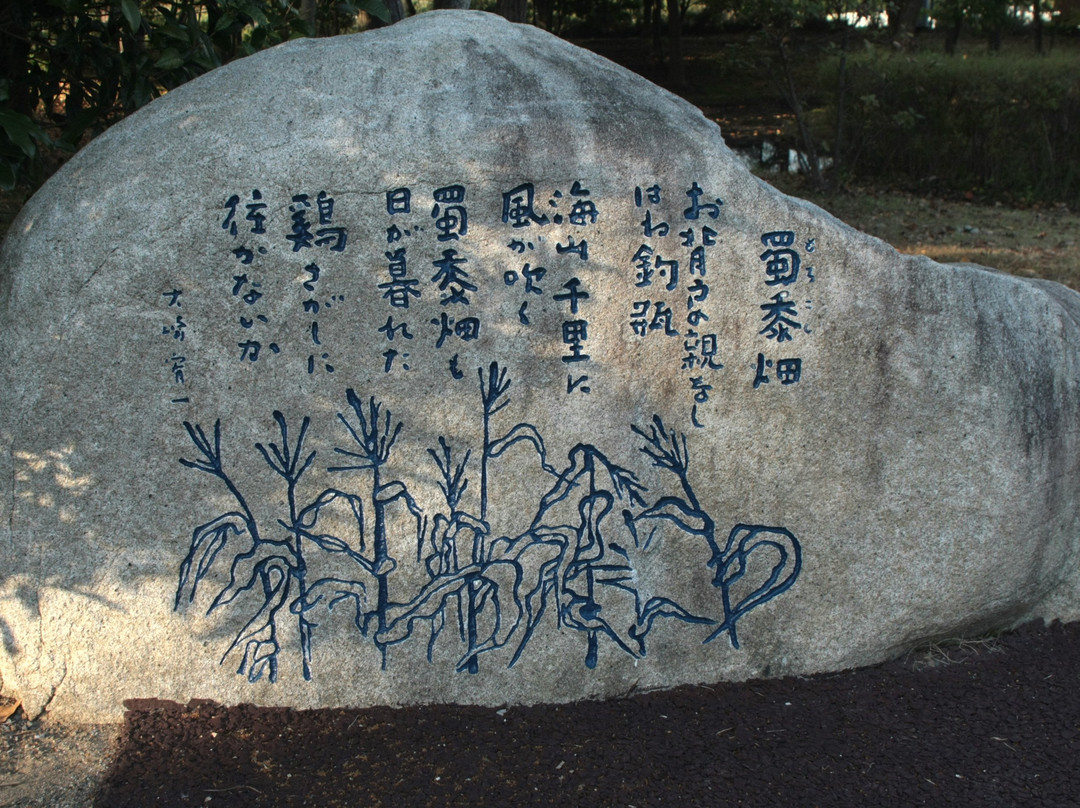 蜀黍畑
もろこし
お背戸の親なし
はね釣瓶
海山千里に
風が吹く
蜀黍畑も
日が暮れた
鶏さがしに
往かないか